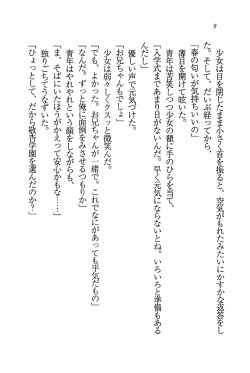 8
少女は目を閉じたまま小さく首を振ると、空気がもれたみたいにかすかな返答をし
た。そして、だいぶ経ってから、
「春の匂いが気持ちいいの」
薄目を開けて呟いた。
青年は苦笑しつつ少女の額に手のひらを当て、
「入学式まであまり日がないんだし。早く元気にならないとね。いろいろと準備もある
んだし」
「お兄ちゃんもでしょ」
優しい声で元気づけた。
少女は弱々しくクスッと微笑んだ。
「でも、よかった。お兄ちゃんが一緒で。これでなにがあっても平気だもの」
「なんだ。ずっと俺に面倒をみさせるつもりか」
青年はやれやれという顔をしながらも、
「ま、そばにいたほうがかえって安心かもな……」
独りごちてうなずいた。
「ひょっとして、だから敬香学園を選んだのか？」